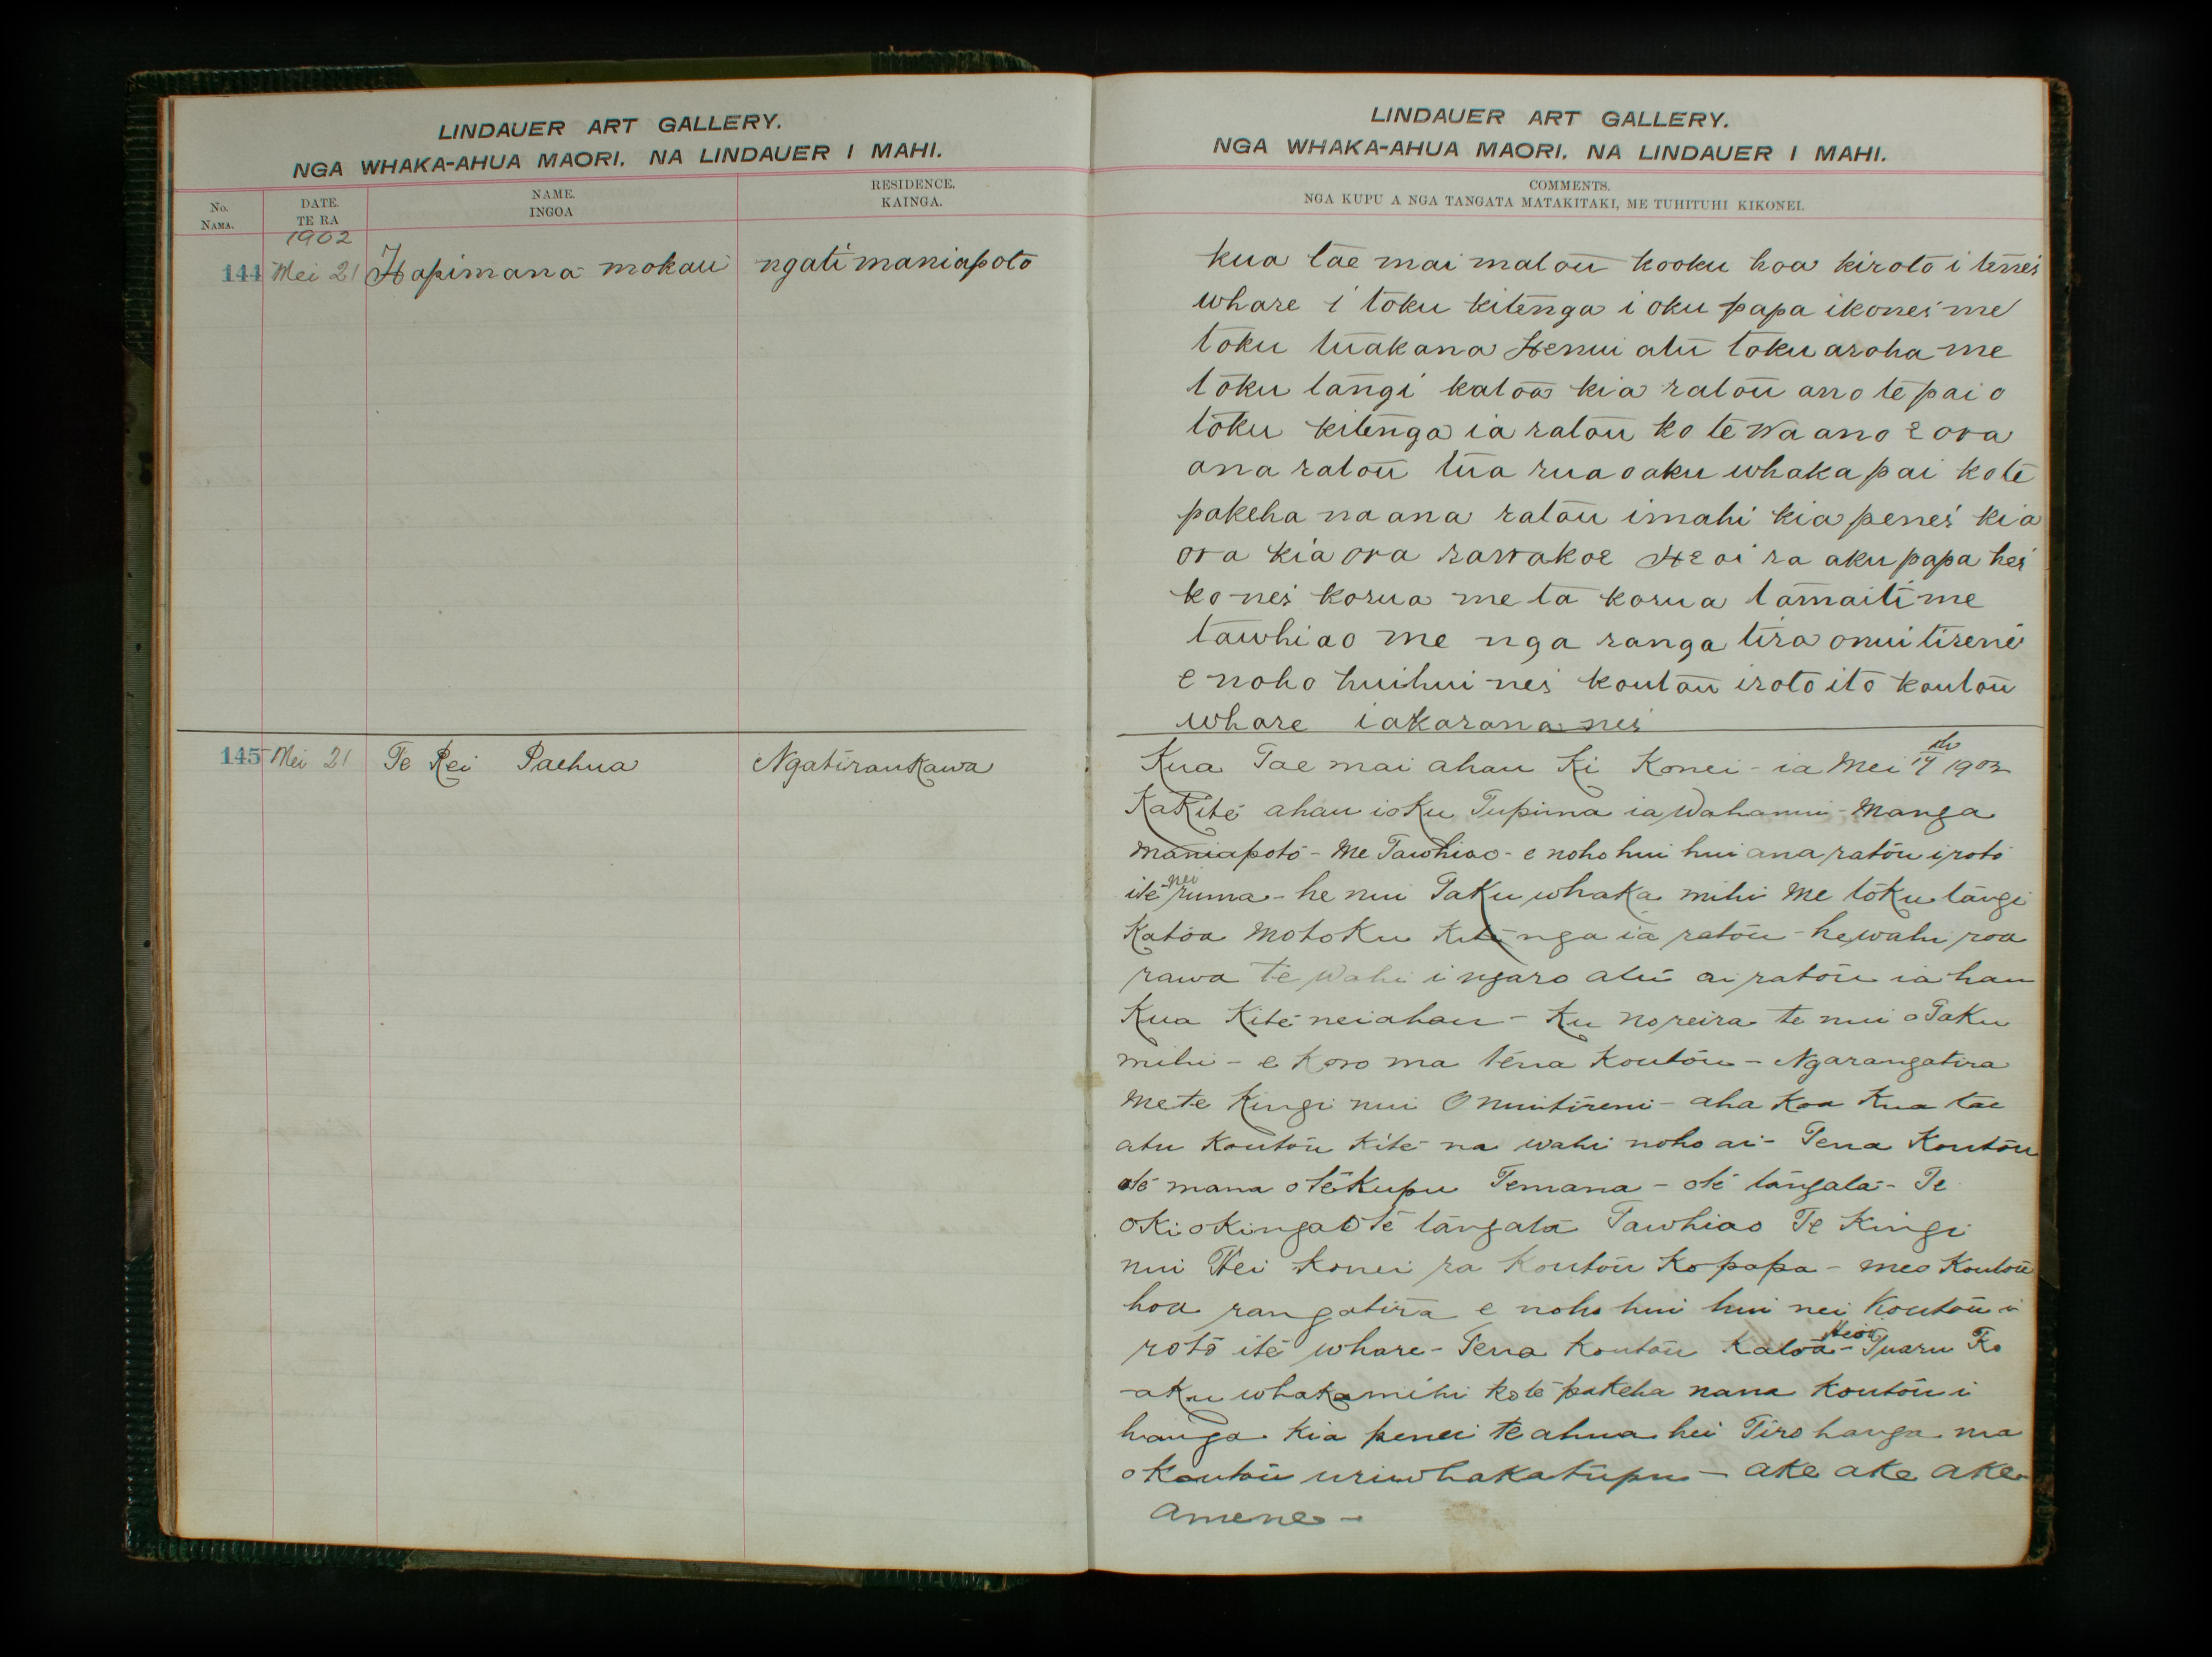 LINDAUER ART GALLERY.
NGA WHAKA-AHUA MAORI, NA LINDAUER I MAHI.
No.
NAMA.
DATE.
TE RA
NAME.
INGOA
RESIDENCE.
KAINGA.
1902
144 Mei 21 Hapimana mokau ngati maniapoto
145 Mei 21 Te Rei Paehua Ngatiraukawa
LINDAUER ART GALLERY.
NGA WHAKA-AHUA MAORI, NA LINDAUER I MAHI.
COMMENTS.
NGA KUPU A NGA TANGATA MATAKITAKI, ME TUHITUHI KIKONEI.
kua tae mai matou kooku hoa kiroto i tenei
whare i toku kitenga i oku papa ikonei me
toku tuakana Henui atu toku aroha me
toku tangi katoa kia ratou ano te pai o
toku kitenga ia ratou ko te wa ano e ora
ana ratou tua rua o aku whaka pai ko te
pakeha na ana ratou imahi kia penei kia
ora kia ora rawakoe He oi ra aku papa hei
ko nei korua me ta korua tamaiti me
tawhiao me nga ranga tira onui tireni
e noho huihui nei koutou iroto i to koutou
whare iakarana nei
Kua Tae mai ahau Ki Konei - ia Mei 17 th 1902
KaKite ahau ioKu Tupuna ia Wahanui - Manga
Maniapoto - Me Tawhiao - e noho hui hui ana ratou iroto
ite nei ruma - he nui TaKu whaKa mihi Me toku tangi
Katoa MotoKu Kitenga ia ratou - he wahi roa
rawa te Wahi i ngaro atu ai ratou ia hau
Kua Kite neiahau - Ku noreira te nui o TaKu
mihi - e Koro ma tena Koutou - Ngarangatira
Mete Kingi nui O Nuitireni - aha Koa Kua tae
atu Koutou Kite na wahi noho ai - Tena Koutou
ote mana oteKupu Temana - ote tangata - Te
oKioKinga ote tangata Tawhiao Te Kingi
nui Hei Konei ra Koutou Ko papa - meo Koutou
hoa rangatira e noho hui hui nei Koutou i
roto ite whare - Tena Koutou Katoa - Heoi Tuaru Ko
aKu whaKamihi Kote paKeha nana Koutou i
hanga Kia penei te ahua hei Tiro hanga ma
o Koutou uriwhaKatupu - aKe aKe aKe
amene -